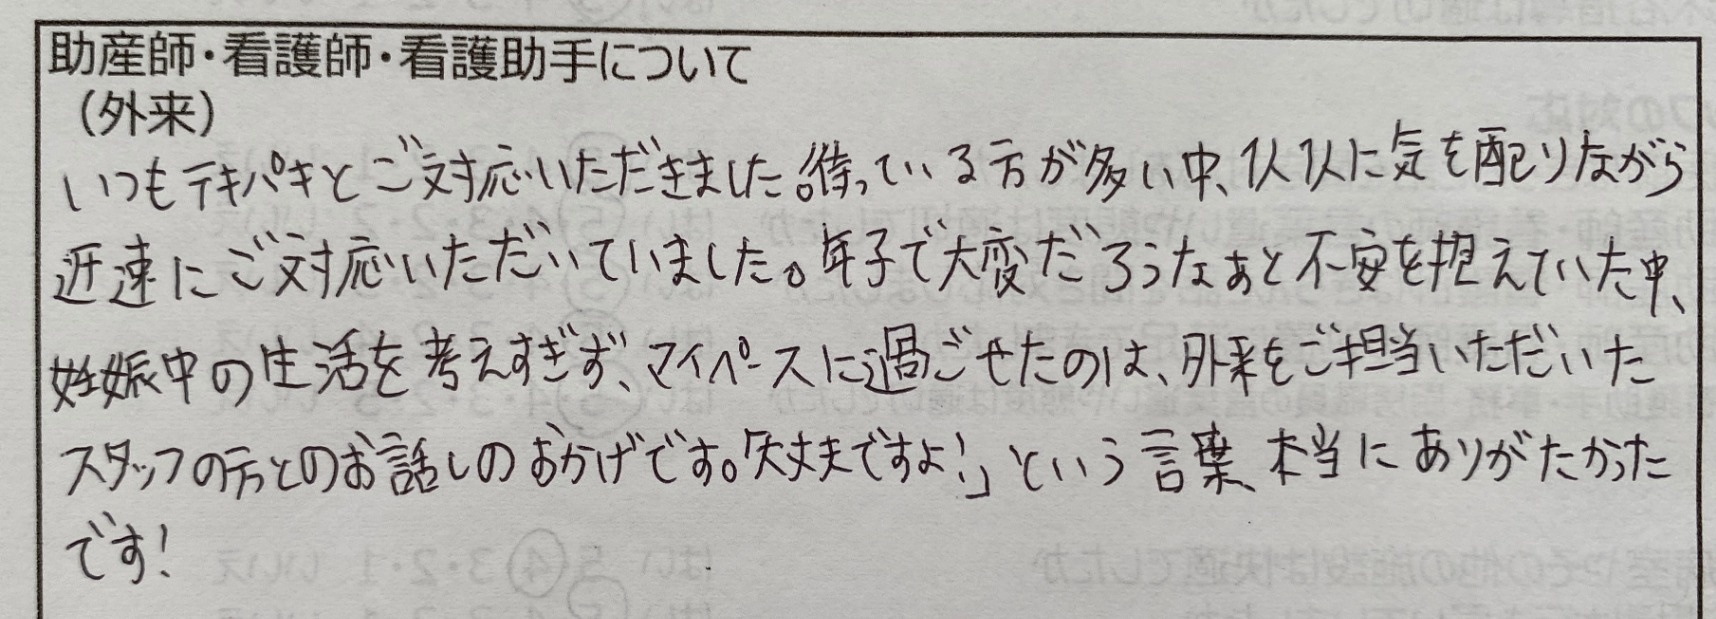 助産師・看護師・看護助手について
（外来）
いつもテキパキとご対応いただきました。待っている方が多い中、1人1人に気を配りながら
迅速にご対応いただいていました。年子で大変だろうなぁと不安を抱えていた中、
妊娠中の生活を考えすぎず、マイペースに過ごせたのは、外来をご担当いただいた
スタッフの方とのお話しのおかげです。「大丈夫ですよ！」という言葉、本当にありがたかった
です！